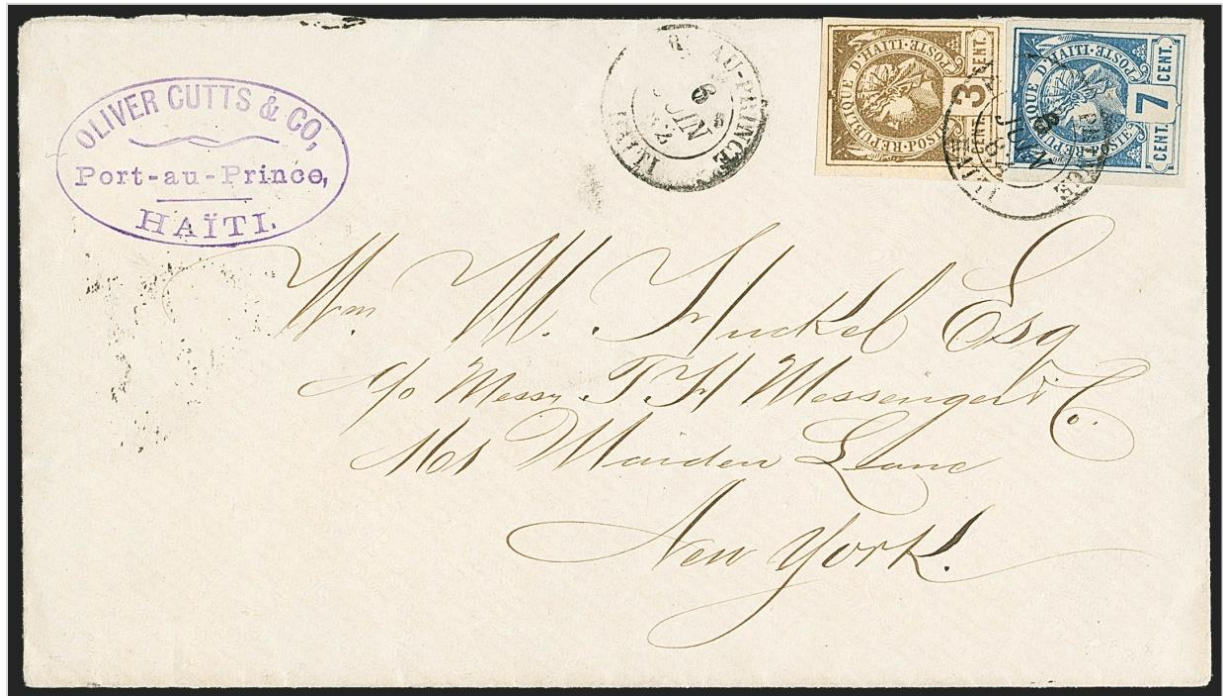 OLIVER CUTTS & CO,
Port-au-Prince,
HAÏTI.
AU-PRINCE
6
JUIN
82
REPUBLIQUE D'HAITI·POSTE
POSTE
3
CENT.
CENT.
REPUBLIQUE D'HAITI·POSTE
POSTE
7
CENT.
CENT.
6
JUIN
Wm. M. Huckel Esq
c/o Messrs. T H Messenger & Co.
161 Maiden Lane
New York.